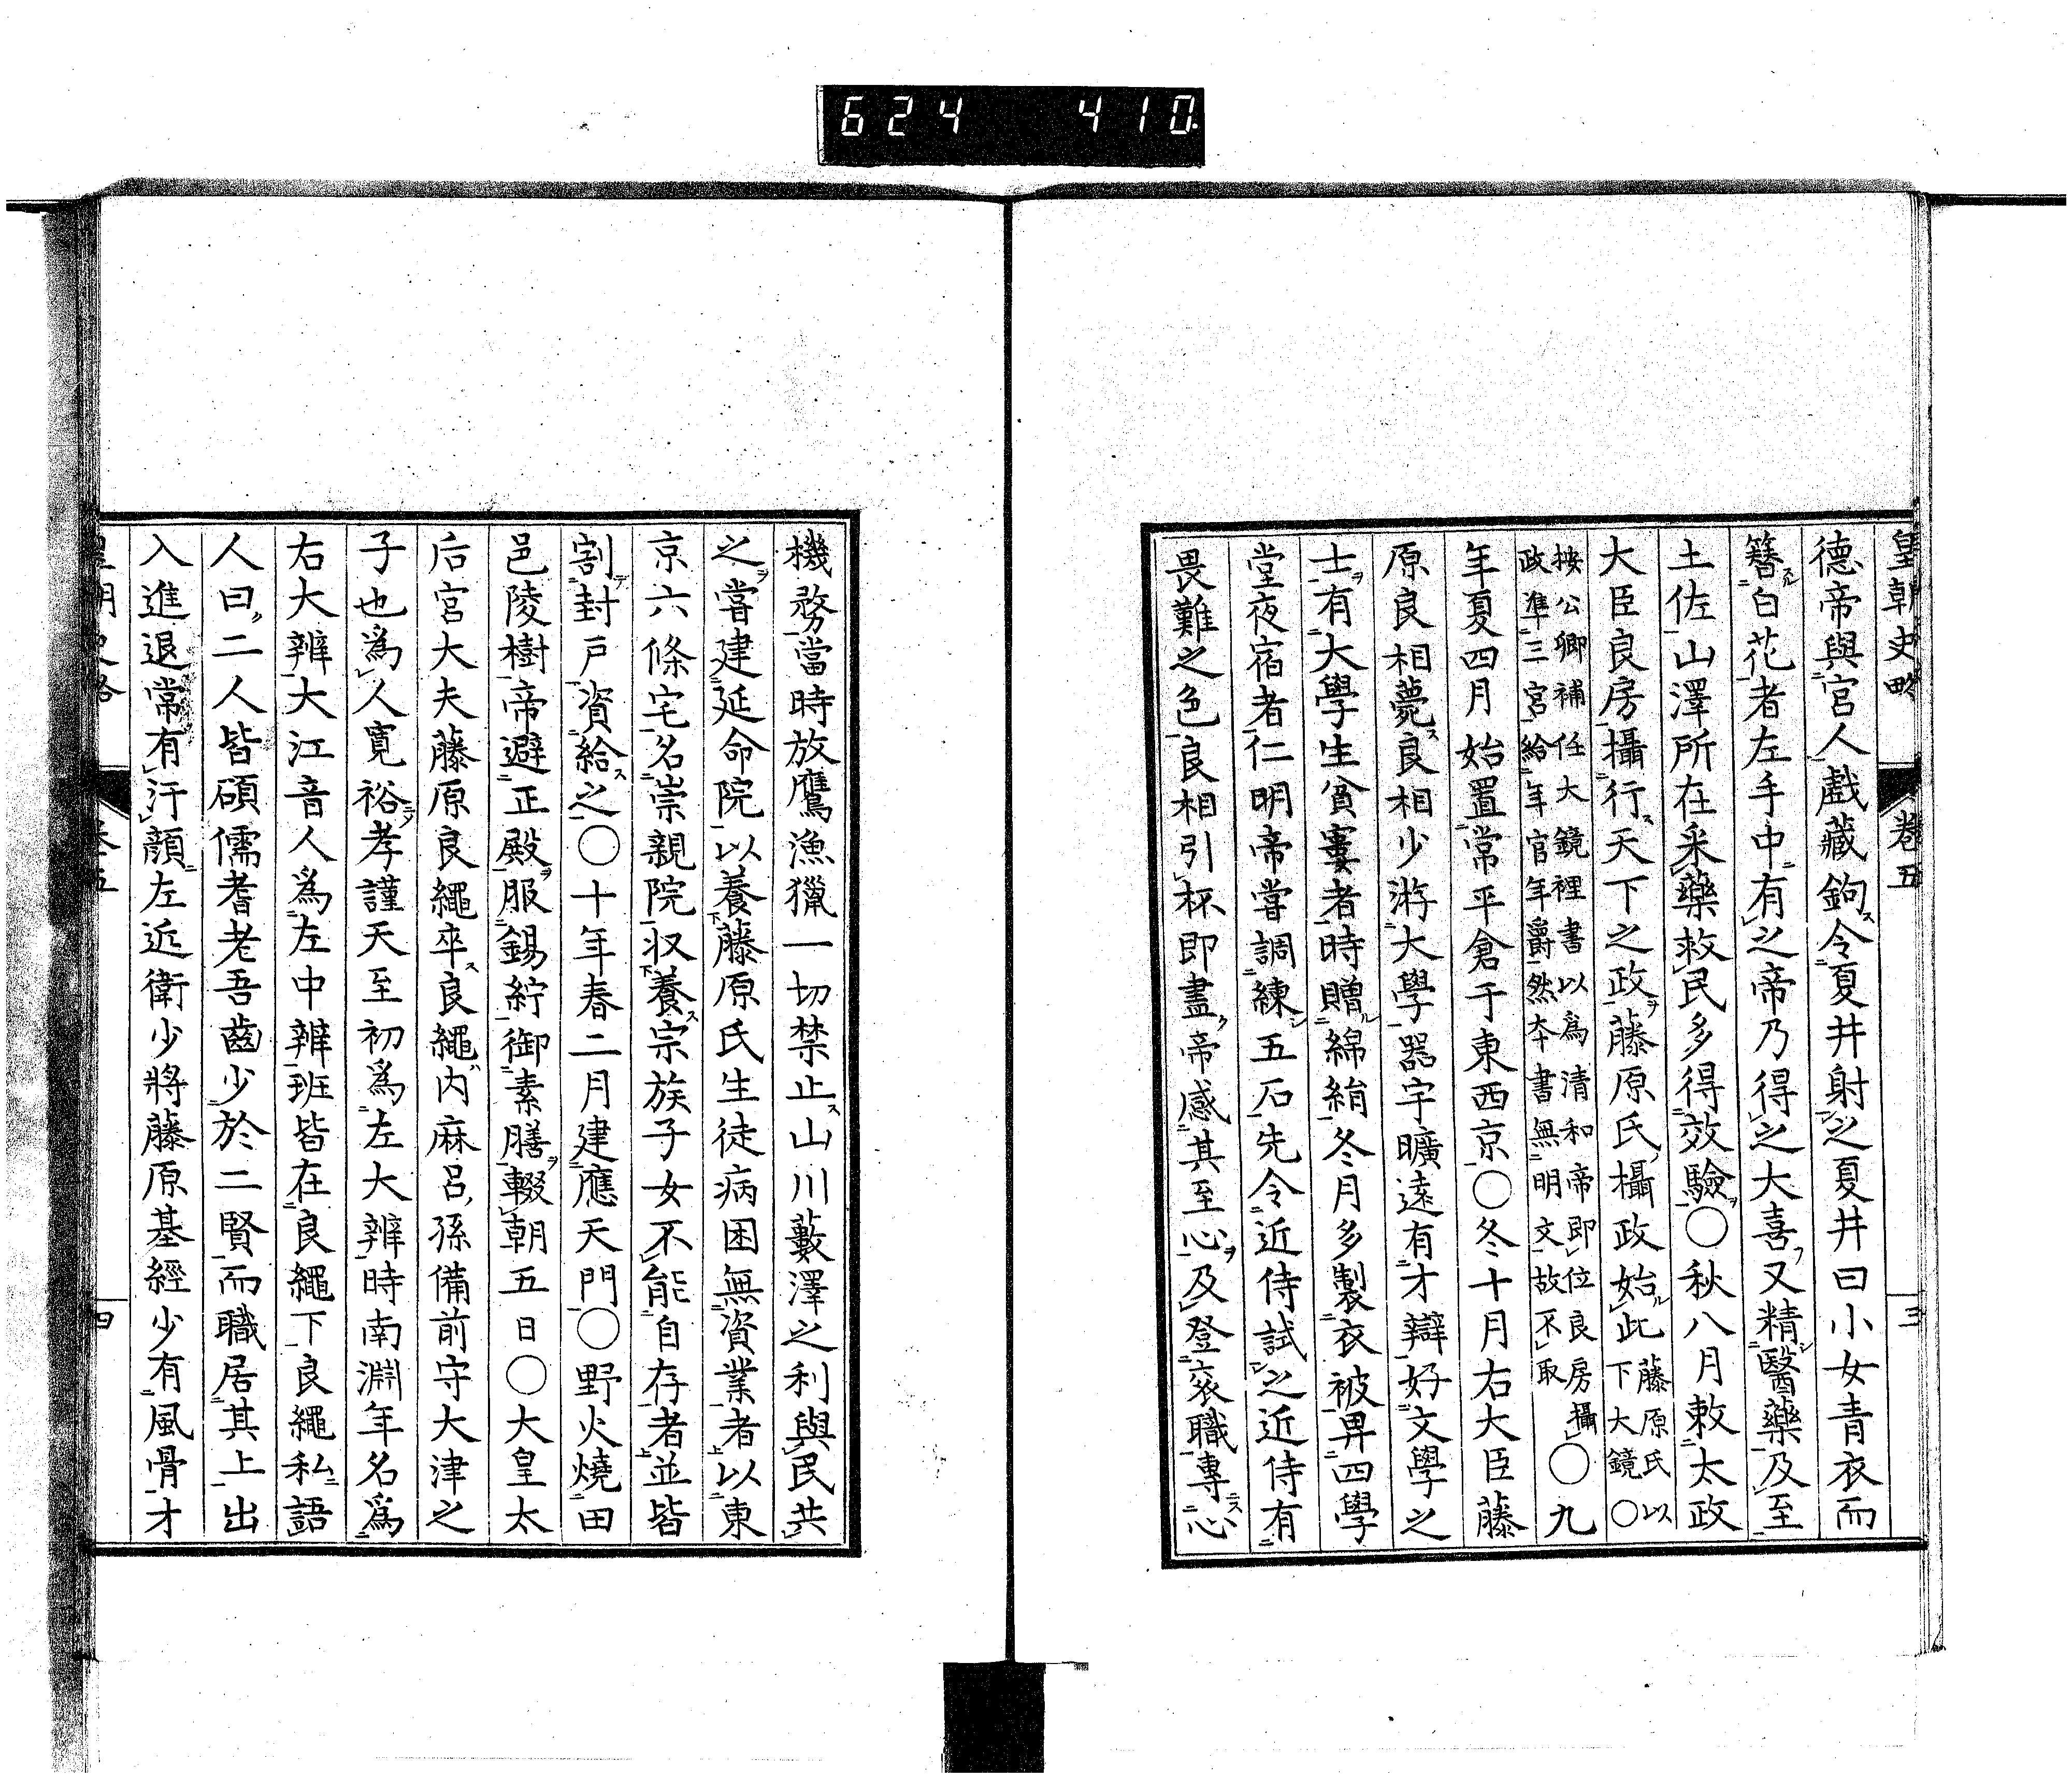 624 410
皇朝史略 卷五 三
德帝與宮人戲藏鉤令夏井射之夏井曰小女青衣而
簪白花者左手中有之帝乃得之大喜又精醫藥及至
土佐山澤所在采藥救民多得效驗○秋八月敕太政
大臣良房攝行天下之政藤原氏攝政始此藤原氏以下大鏡○
按公卿補任大鏡裡書以爲清和帝即位良房攝
政準三宮給年官年爵然本書無明文故不取○九
年夏四月始置常平倉于東西京○冬十月右大臣藤
原良相薨良相少游大學器宇曠遠有才辯好文學之
士有大學生貧寠者時贈綿絹冬月多製衣被畀四學
堂夜宿者仁明帝嘗調練五石先令近侍試之近侍有
畏難之色良相引杯即盡帝感其至心及登袞職專心
機務當時放鷹漁獵一切禁止山川藪澤之利與民共
之嘗建延命院以養藤原氏生徒病困無資業者以東
京六條宅名崇親院收養宗族子女不能自存者並皆
割封戶資給之○十年春二月建應天門○野火燒田
邑陵樹帝避正殿服錫紵御素膳輟朝五日○大皇太
后宮大夫藤原良繩卒良繩內麻呂孫備前守大津之
子也爲人寬裕孝謹天至初爲左大辨時南淵年名爲
右大辨大江音人爲左中辨班皆在良繩下良繩私語
人曰二人皆碩儒耆老吾齒少於二賢而職居其上出
入進退常有汗顏左近衛少將藤原基經少有風骨才
皇朝史略 卷五 四